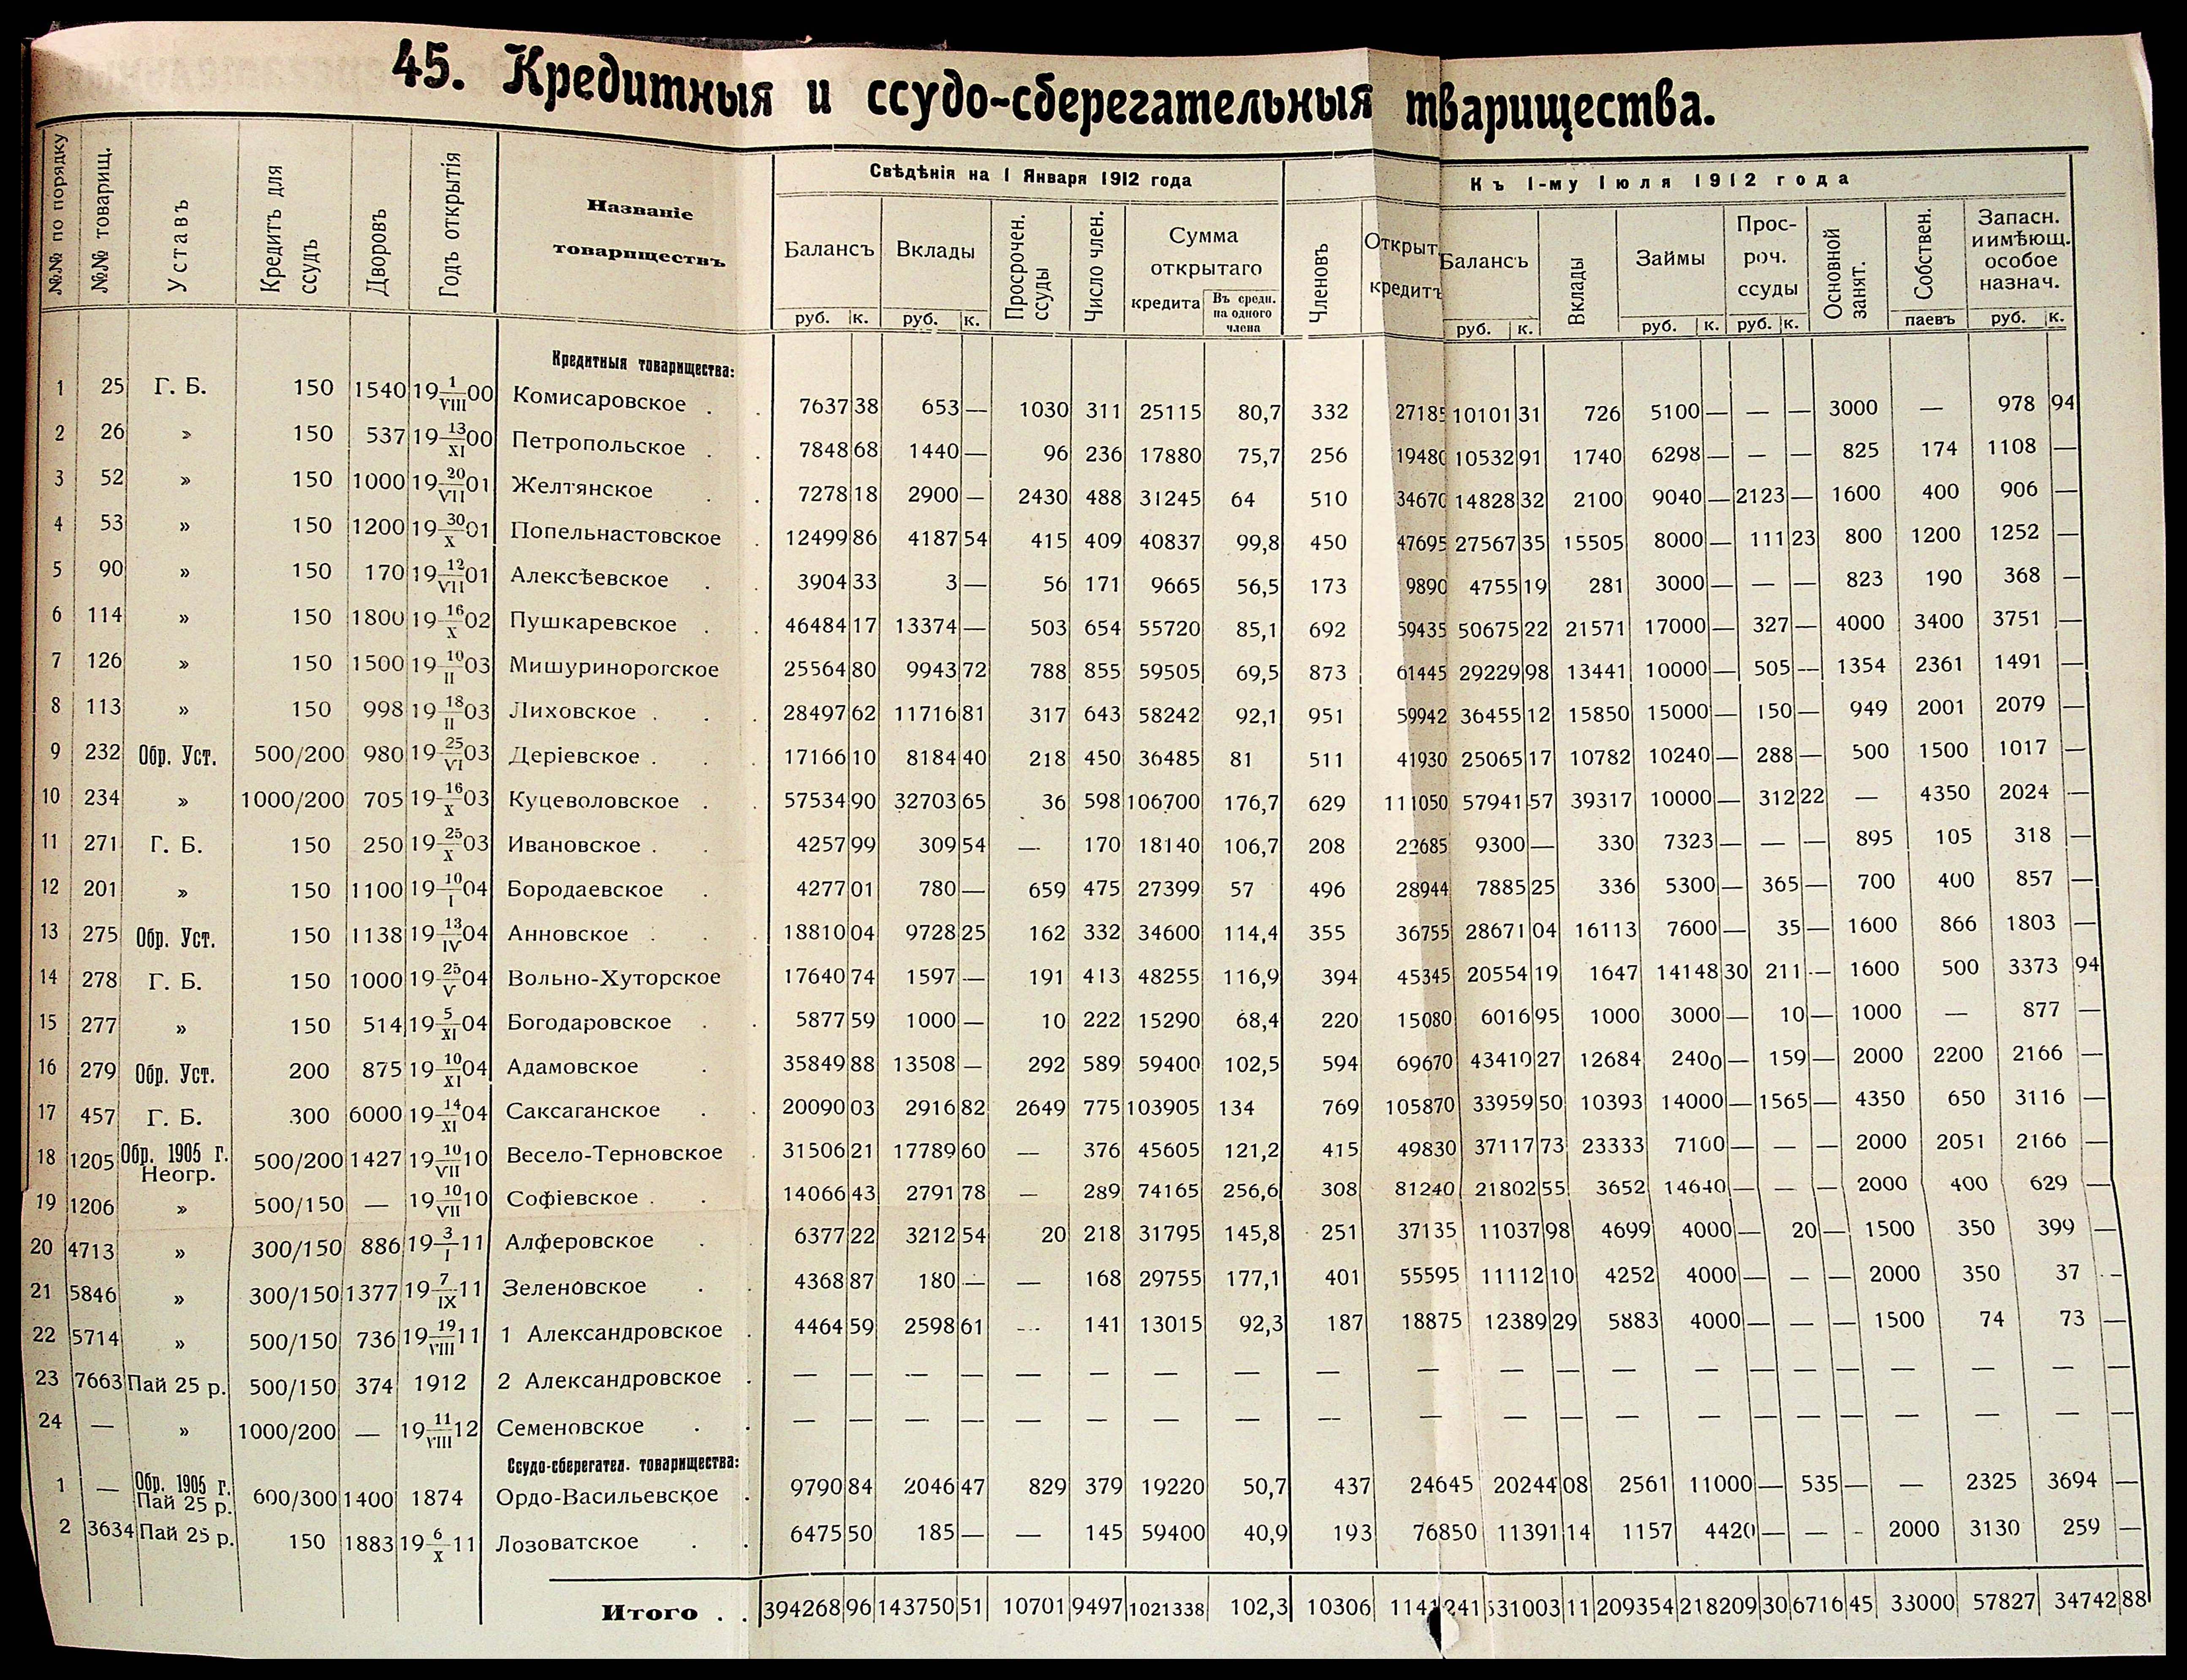 45. Кредитныя и ссудо-сберегательныя тварищества.
№№ по порядку | №№ товарищ. | Уставъ | Кредитъ для ссудъ | Дворовъ | Годъ открытія | Названіе товариществъ | Свѣдѣнія на 1 Января 1912 года | Къ 1-му Іюля 1912 года
Балансъ | Вклады | Просрочен. ссуды | Число член. | Сумма открытаго кредита | Въ средн. на одного члена | Членовъ | Открыт. кредитъ | Балансъ | Вклады | Займы | Прос-роч. ссуды | Основной занят. | Собствен. паевъ | Запасн. и имѣющ. особое назнач.
руб. | к. | руб. | к. | руб. | к. | руб. | к. | руб. | к. | руб. | к.
Кредитныя товарищества:
1 25 Г. Б. 150 1540 19 1/VIII 00 Комисаровское . . 7637 38 653 — 1030 311 25115 80,7 332 27185 10101 31 726 5100 — — — 3000 — 978 94
2 26 » 150 537 19 13/XI 00 Петропольское . . 7848 68 1440 — 96 236 17880 75,7 256 19480 10532 91 1740 6298 — — — 825 174 1108 —
3 52 » 150 1000 19 20/VII 01 Желтянское . . 7278 18 2900 — 2430 488 31245 64 510 34670 14828 32 2100 9040 — 2123 — 1600 400 906 —
4 53 » 150 1200 19 30/X 01 Попельнастовское . 12499 86 4187 54 415 409 40837 99,8 450 47695 27567 35 15505 8000 — 111 23 800 1200 1252 —
5 90 » 150 170 19 12/VII 01 Алексѣевское . . 3904 33 3 — 56 171 9665 56,5 173 9890 4755 19 281 3000 — — — 823 190 368 —
6 114 » 150 1800 19 16/X 02 Пушкаревское . . 46484 17 13374 — 503 654 55720 85,1 692 59435 50675 22 21571 17000 — 327 — 4000 3400 3751 —
7 126 » 150 1500 19 10/II 03 Мишуринорогское 25564 80 9943 72 788 855 59505 69,5 873 61445 29229 98 13441 10000 — 505 — 1354 2361 1491 —
8 113 » 150 998 19 18/II 03 Лиховское . . . 28497 62 11716 81 317 643 58242 92,1 951 59942 36455 12 15850 15000 — 150 — 949 2001 2079 —
9 232 Обр. Уст. 500/200 980 19 25/VI 03 Деріевское . . . 17166 10 8184 40 218 450 36485 81 511 41930 25065 17 10782 10240 — 288 — 500 1500 1017 —
10 234 » 1000/200 705 19 16/X 03 Куцеволовское . . 57534 90 32703 65 36 598 106700 176,7 629 111050 57941 57 39317 10000 — 312 22 — 4350 2024 —
11 271 Г. Б. 150 250 19 25/X 03 Ивановское . . 4257 99 309 54 — 170 18140 106,7 208 22685 9300 — 330 7323 — — — 895 105 318 —
12 201 » 150 1100 19 10/I 04 Бородаевское . 4277 01 780 — 659 475 27399 57 496 28944 7885 25 336 5300 — 365 — 700 400 857 —
13 275 Обр. Уст. 150 1138 19 13/IV 04 Анновское . . . 18810 04 9728 25 162 332 34600 114,4 355 36755 28671 04 16113 7600 — 35 — 1600 866 1803 —
14 278 Г. Б. 150 1000 19 25/V 04 Вольно-Хуторское 17640 74 1597 — 191 413 48255 116,9 394 45345 20554 19 1647 14148 30 211 — 1600 500 3373 94
15 277 » 150 514 19 5/XI 04 Богодаровское . . 5877 59 1000 — 10 222 15290 68,4 220 15080 6016 95 1000 3000 — 10 — 1000 — 877 —
16 279 Обр. Уст. 200 875 19 10/XI 04 Адамовское . 35849 88 13508 — 292 589 59400 102,5 594 69670 43410 27 12684 2400 — 159 — 2000 2200 2166 —
17 457 Г. Б. 300 6000 19 14/XI 04 Саксаганское . . 20090 03 2916 82 2649 775 103905 134 769 105870 33959 50 10393 14000 — 1565 — 4350 650 3116 —
18 1205 Обр. 1905 г. Неогр. 500/200 1427 19 10/VII 10 Весело-Терновское 31506 21 17789 60 — 376 45605 121,2 415 49830 37117 73 23333 7100 — — — 2000 2051 2166 —
19 1206 » 500/150 — 19 10/VII 10 Софіевское . . 14066 43 2791 78 — 289 74165 256,6 308 81240 21802 55 3652 14640 — — — 2000 400 629 —
20 4713 » 300/150 886 19 3/I 11 Алферовское . . 6377 22 3212 54 20 218 31795 145,8 251 37135 11037 98 4699 4000 — 20 — 1500 350 399 —
21 5846 » 300/150 1377 19 7/IX 11 Зеленовское . . 4368 87 180 — — 168 29755 177,1 401 55595 11112 10 4252 4000 — — — 2000 350 37 —
22 5714 » 500/150 736 19 19/VIII 11 1 Александровское . 4464 59 2598 61 — 141 13015 92,3 187 18875 12389 29 5883 4000 — — — 1500 74 73 —
23 7663 Пай 25 р. 500/150 374 1912 2 Александровское . — — — — — — — — — — — — — — — — — — — — —
24 — » 1000/200 — 19 11/VIII 12 Семеновское . . — — — — — — — — — — — — — — — — — — — — —
Ссудо-сберегател. товарищества:
1 — Обр. 1905 г. Пай 25 р. 600/300 1400 1874 Ордо-Васильевское . 9790 84 2046 47 829 379 19220 50,7 437 24645 20244 08 2561 11000 — 535 — — 2325 3694 —
2 3634 Пай 25 р. 150 1883 19 6/X 11 Лозоватское . . 6475 50 185 — — 145 59400 40,9 193 76850 11391 14 1157 4420 — — - 2000 3130 259 —
Итого . . 394268 96 143750 51 10701 9497 1021338 102,3 10306 1141241 531003 11 209354 218209 30 6716 45 33000 57827 34742 88